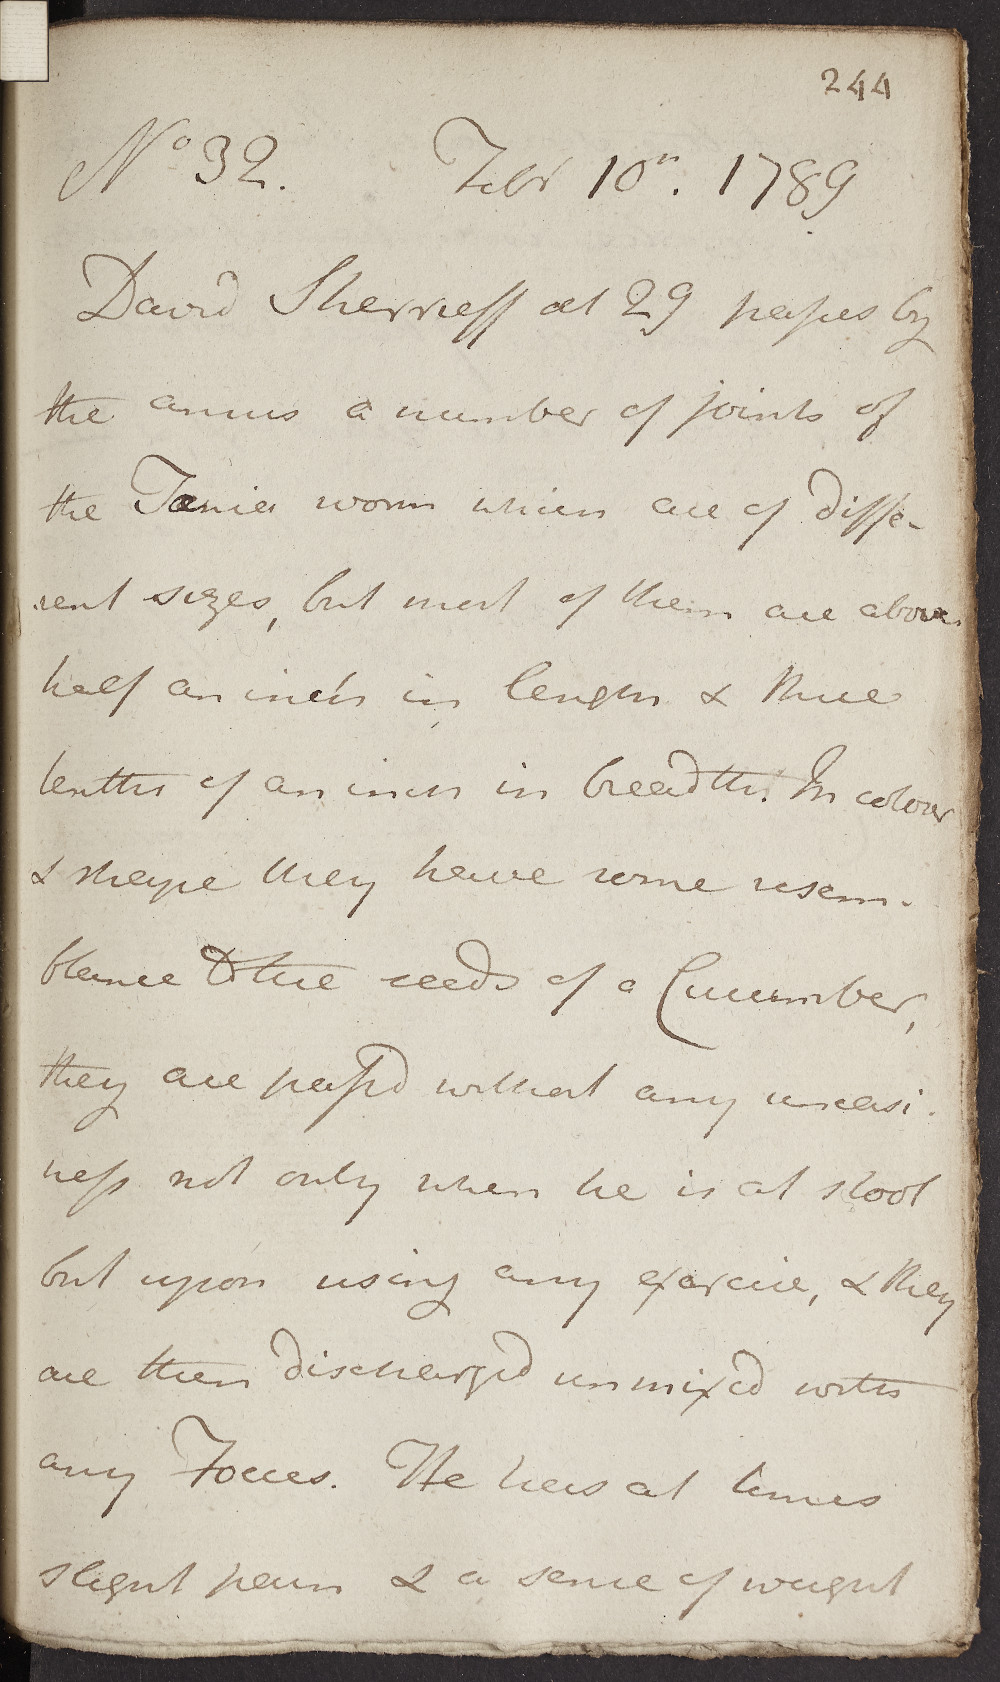 244
No 32. Febr 10th. 1789
David Sherrieff æt 29 passes by
the anus a number of joints of
the Tænia worm which are of diffe-
rent sizes, but most of them are above
half an inch in length & three
tenths of an inch in breadth. In colour
& shape they have some resem-
blance to the seeds of a Cucumber,
they are pass'd without any uneasi-
ness not only when he is at stool
but upon using any exercise, & they
are then discharged unmixed with
any Fœces. He has at times
slight pain & a sense of weight